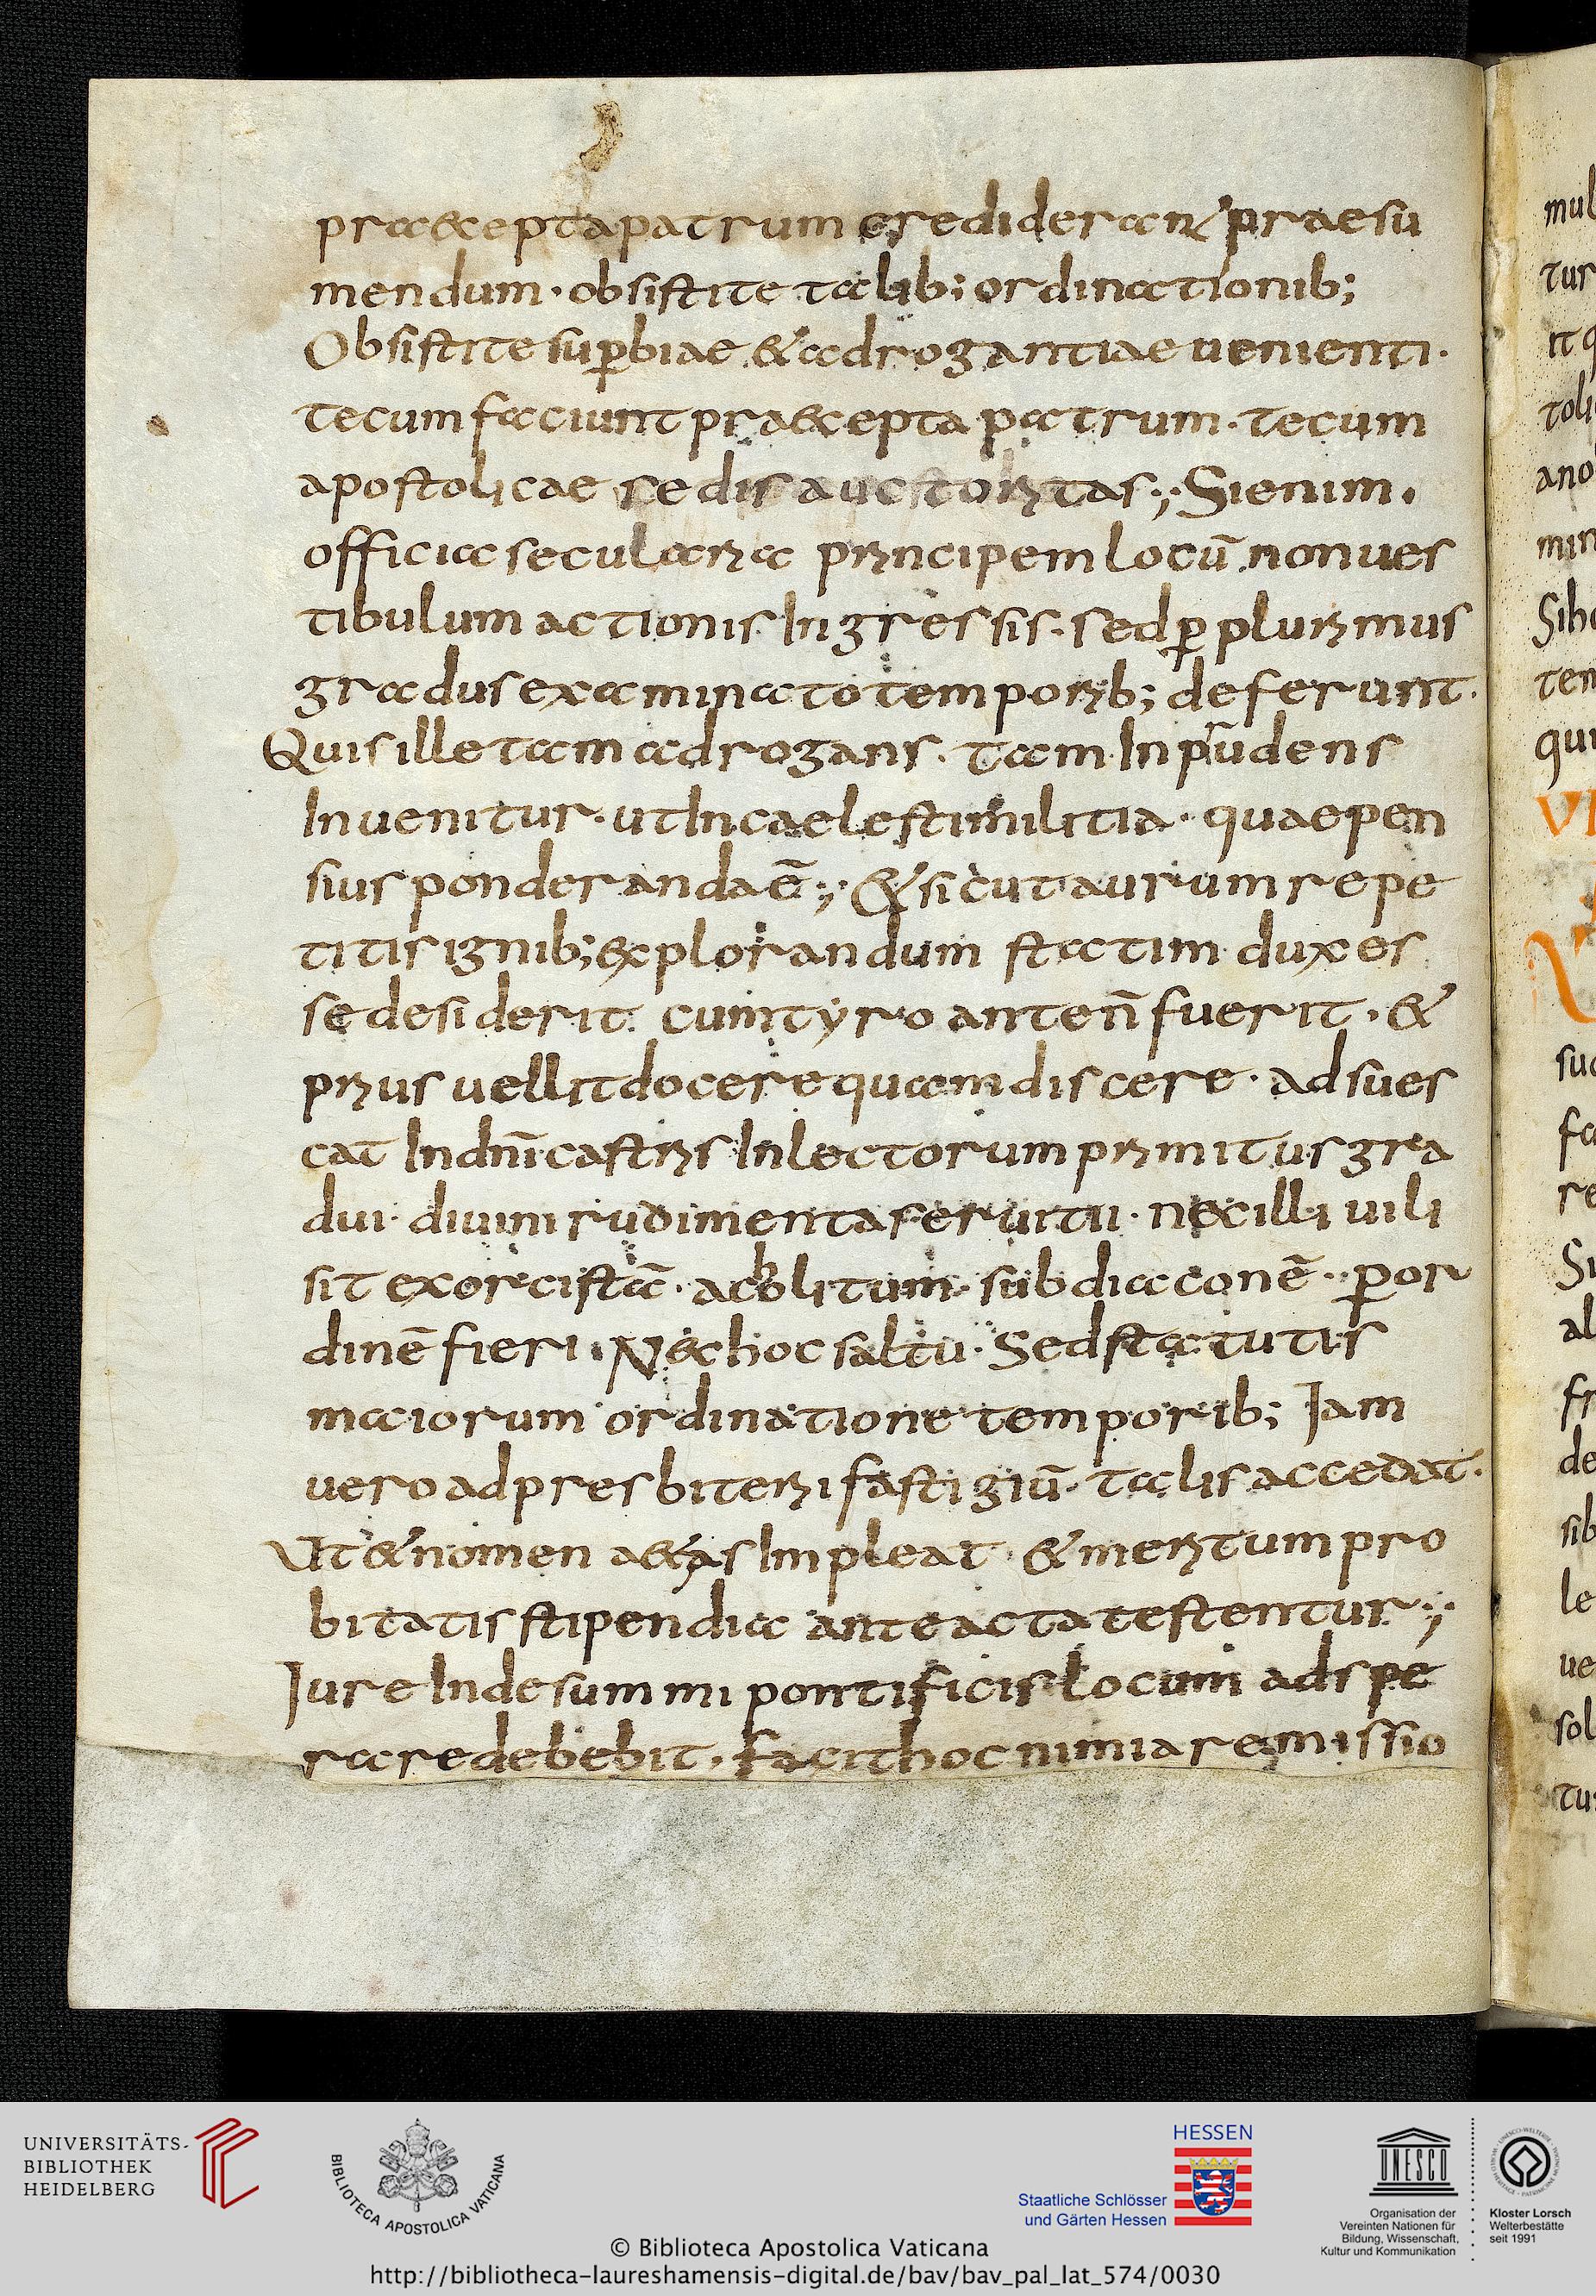 praeceptapatrum crediderant praesu
mendum · obsistite talib; ordinationib;
Obsistite sup̱biae & adrogantiae uenienti ·
tecum faciunt praecepta patrum · tecum
apostolicae sedis auctoritas ·,· Si enim ·
officia secularia principem locū non ues
tibulum actionis Ingressis · sed p̱ plurimus
gradus examinato temporib; deferunt ·
Quis ille tam adrogans · tam Inprudens
Inuenitur · ut In caelesti militia · quae pen
sius ponderanda ē ·,· & sicut aurum repe
titis ignib; explorandum statim dux es
se desiderit cum tyro ante n̄ fuerit · &
prius uellit docere quam discere · adsues
cat In dn̄i castris In lectorum primitus gra
dui · diuini rudimenta seruitii · nec illi uili
sit exorcistā · acholitum · subdiaconē · p̱ or
dinē fieri · Nec hoc saltu · Sed statutis
maiorum ordinatione temporib; Iam
uero ad presbiterii fastigiū · talis accedat ·
Ut & nomen aetas Impleat · & meritum pro
bitatis stipendia ante acta testentur ·,·
Iure Inde summi pontificis locum adspe
rare debebit · facit hoc nimia remissio
mul
tur
it q
toli
ano
min
Sib
tem
qui
VI
suc
fa
re
Si
al
fr
de
sib
le
ue
sol
tu
UNIVERSITÄTS-
BIBLIOTHEK
HEIDELBERG
BIBLIOTECA APOSTOLICA VATICANA
HESSEN
Staatliche Schlösser
und Gärten Hessen
UNESCO
Organisation der
Vereinten Nationen für
Bildung, Wissenschaft,
Kultur und Kommunikation
Kloster Lorsch
Welterbestätte
seit 1991
© Biblioteca Apostolica Vaticana
http://bibliotheca-laureshamensis-digital.de/bav/bav_pal_lat_574/0030